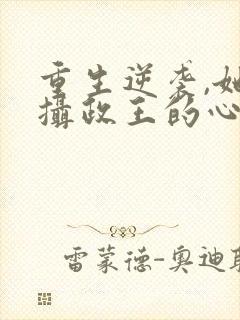 重生逆袭,她
攝政王的心
雷蒙德-奥迪